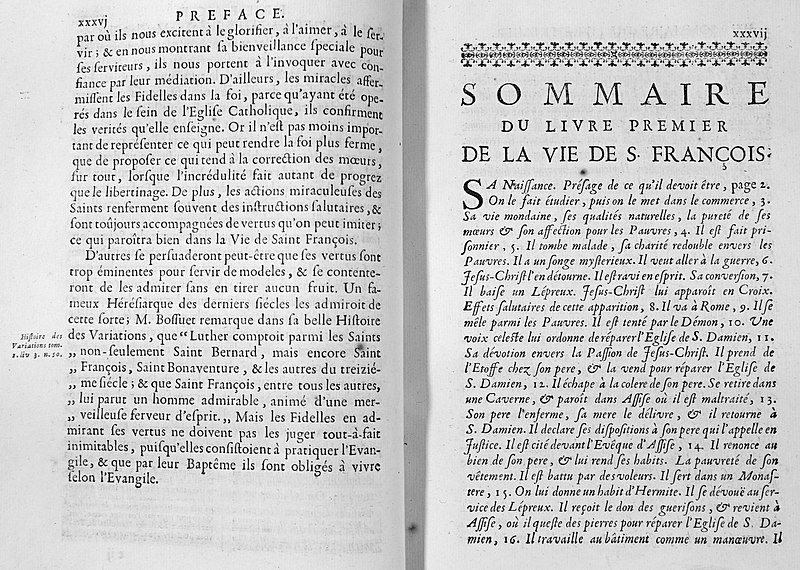 xxxvj PREFACE.
par où ils nous excitent à le glorifier, à l'aimer, à le ser-
vir; & en nous montrant sa bienveillance speciale pour
ses serviteurs, ils nous portent à l'invoquer avec con-
fiance par leur médiation. D'ailleurs, les miracles affer-
missent les Fidelles dans la foi, parce qu'ayant été ope-
rés dans le sein de l'Eglise Catholique, ils confirment
les verités qu'elle enseigne. Or il n'est pas moins impor-
tant de représenter ce qui peut rendre la foi plus ferme,
que de proposer ce qui tend à la correction des mœurs,
sur tout, lorsque l'incrédulité fait autant de progrez
que le libertinage. De plus, les actions miraculeuses des
Saints renferment souvent des instructions salutaires, &
sont toûjours accompagnées de vertus qu'on peut imiter;
ce qui paroîtra bien dans la Vie de Saint François.
D'autres se persuaderont peut-être que ses vertus sont
trop éminentes pour servir de modeles, & se contente-
ront de les admirer sans en tirer aucun fruit. Un fa-
meux Hérésiarque des derniers siécles les admiroit de
cette sorte; M. Bossuet remarque dans sa belle Histoire
des Variations, que “ Luther comptoit parmi les Saints
„ non-seulement Saint Bernard, mais encore Saint
„ François, Saint Bonaventure, & les autres du treizié-
„ me siécle; & que Saint François, entre tous les autres,
„ lui parut un homme admirable, animé d'une mer-
„ veilleuse ferveur d'esprit. „ Mais les Fidelles en ad-
mirant ses vertus ne doivent pas les juger tout-à-fait
inimitables, puisqu'elles consistoient à pratiquer l'Evan-
gile, & que par leur Baptême ils sont obligés à vivre
selon l'Evangile.
Histoire des
Variations tom.
2. liv 3. n. 50.
xxxvij
SOMMAIRE
DU LIVRE PREMIER
DE LA VIE DE S. FRANÇOIS.
SA Naissance. Présage de ce qu'il devoit être, page 2.
On le fait étudier, puis on le met dans le commerce, 3.
Sa vie mondaine, ses qualités naturelles, la pureté de ses
mœurs & son affection pour les Pauvres, 4. Il est fait pri-
sonnier, 5. Il tombe malade, sa charité redouble envers les
Pauvres. Il a un songe mysterieux. Il veut aller à la guerre, 6.
Jesus-Christ l'en détourne. Il est ravi en esprit. Sa conversion, 7.
Il baise un Lépreux. Jesus-Christ lui apparoît en Croix.
Effets salutaires de cette apparition, 8. Il va à Rome, 9. Il se
mêle parmi les Pauvres. Il est tenté par le Démon, 10. Une
voix celeste lui ordonne de réparer l'Eglise de S. Damien, 11.
Sa dévotion envers la Passion de Jesus-Christ. Il prend de
l'Etoffe chez son pere, & la vend pour réparer l'Eglise de
S. Damien, 12. Il échape à la colere de son pere. Se retire dans
une Caverne, & paroît dans Assise où il est maltraité, 13.
Son pere l'enferme, sa mere le délivre, & il retourne à
S. Damien. Il declare ses dispositions à son pere qui l'appelle en
Justice. Il est cité devant l'Evêque d'Assise, 14. Il renonce au
bien de son pere, & lui rend ses habits. La pauvreté de son
vêtement. Il est battu par des voleurs. Il sert dans un Monas-
tere, 15. On lui donne un habit d'Hermite. Il se dévouë au ser-
vice des Lépreux. Il reçoit le don des guerisons, & revient à
Assise, où il queste des pierres pour réparer l'Eglise de S. Da-
mien, 16. Il travaille au bâtiment comme un manœuvre. Il